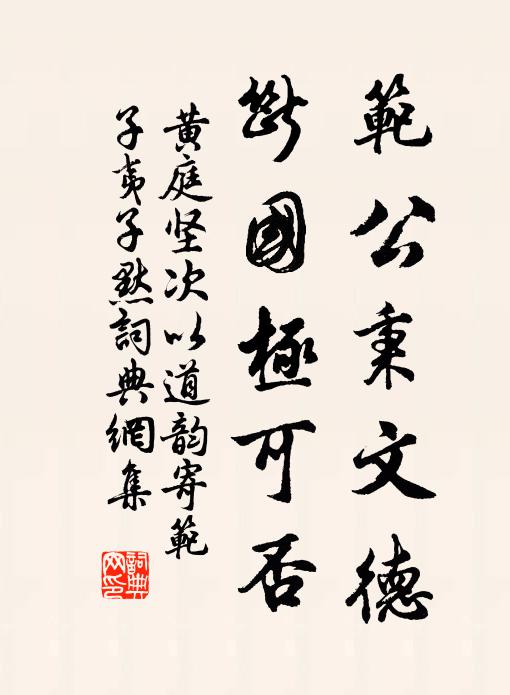 範公秉文德
斷國極可否
黃庭坚次以道韵寄範
子夷子默詞典網集
詞典网印